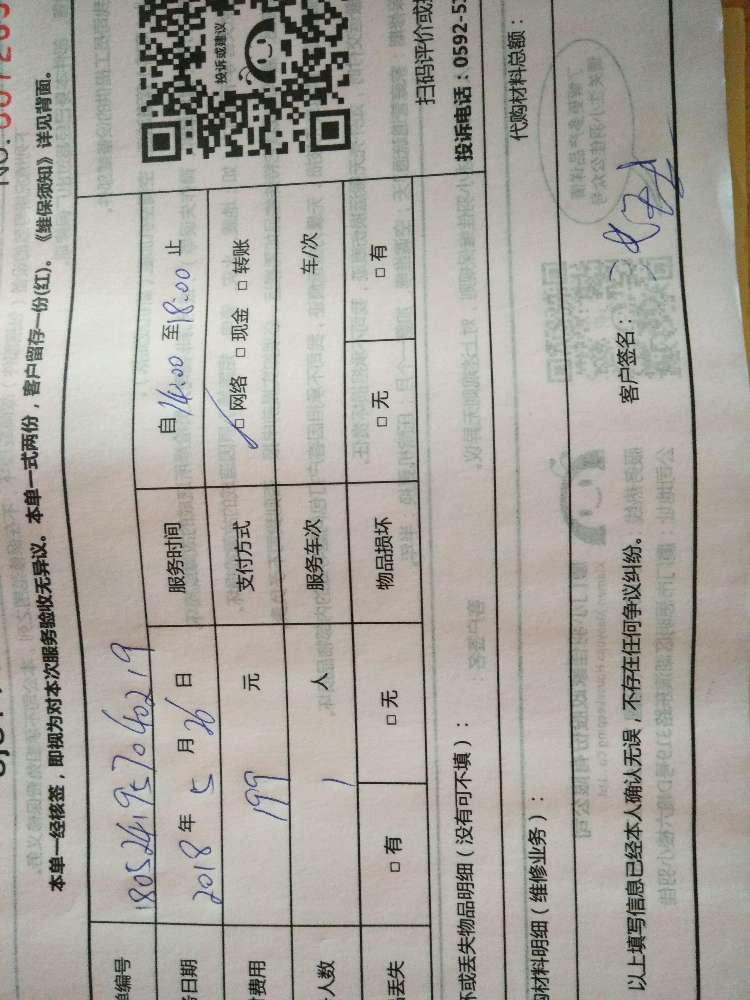 本单一经核签，即视为对本次服务验收无异议。本单一式两份，客户留存一份(红)。《维保须知》详见背面。
单编号 1805241957040219
务日期 2018 年 5 月 26 日 服务时间 自 14:00 至 18:00 止
费用 199 元 支付方式 □ 网络 □ 现金 □ 转账
人数 1 人 服务车次 车/次
丢失 □ 有 □ 无 物品损坏 □ 无 □ 有
投诉或建议
扫码评价或
投诉电话：0592-5
坏或丢失物品明细（没有可不填）：
购材料明细（维修业务）： 代购材料总额：
以上填写信息已经本人确认无误，不存在任何争议纠纷。 客户签名：